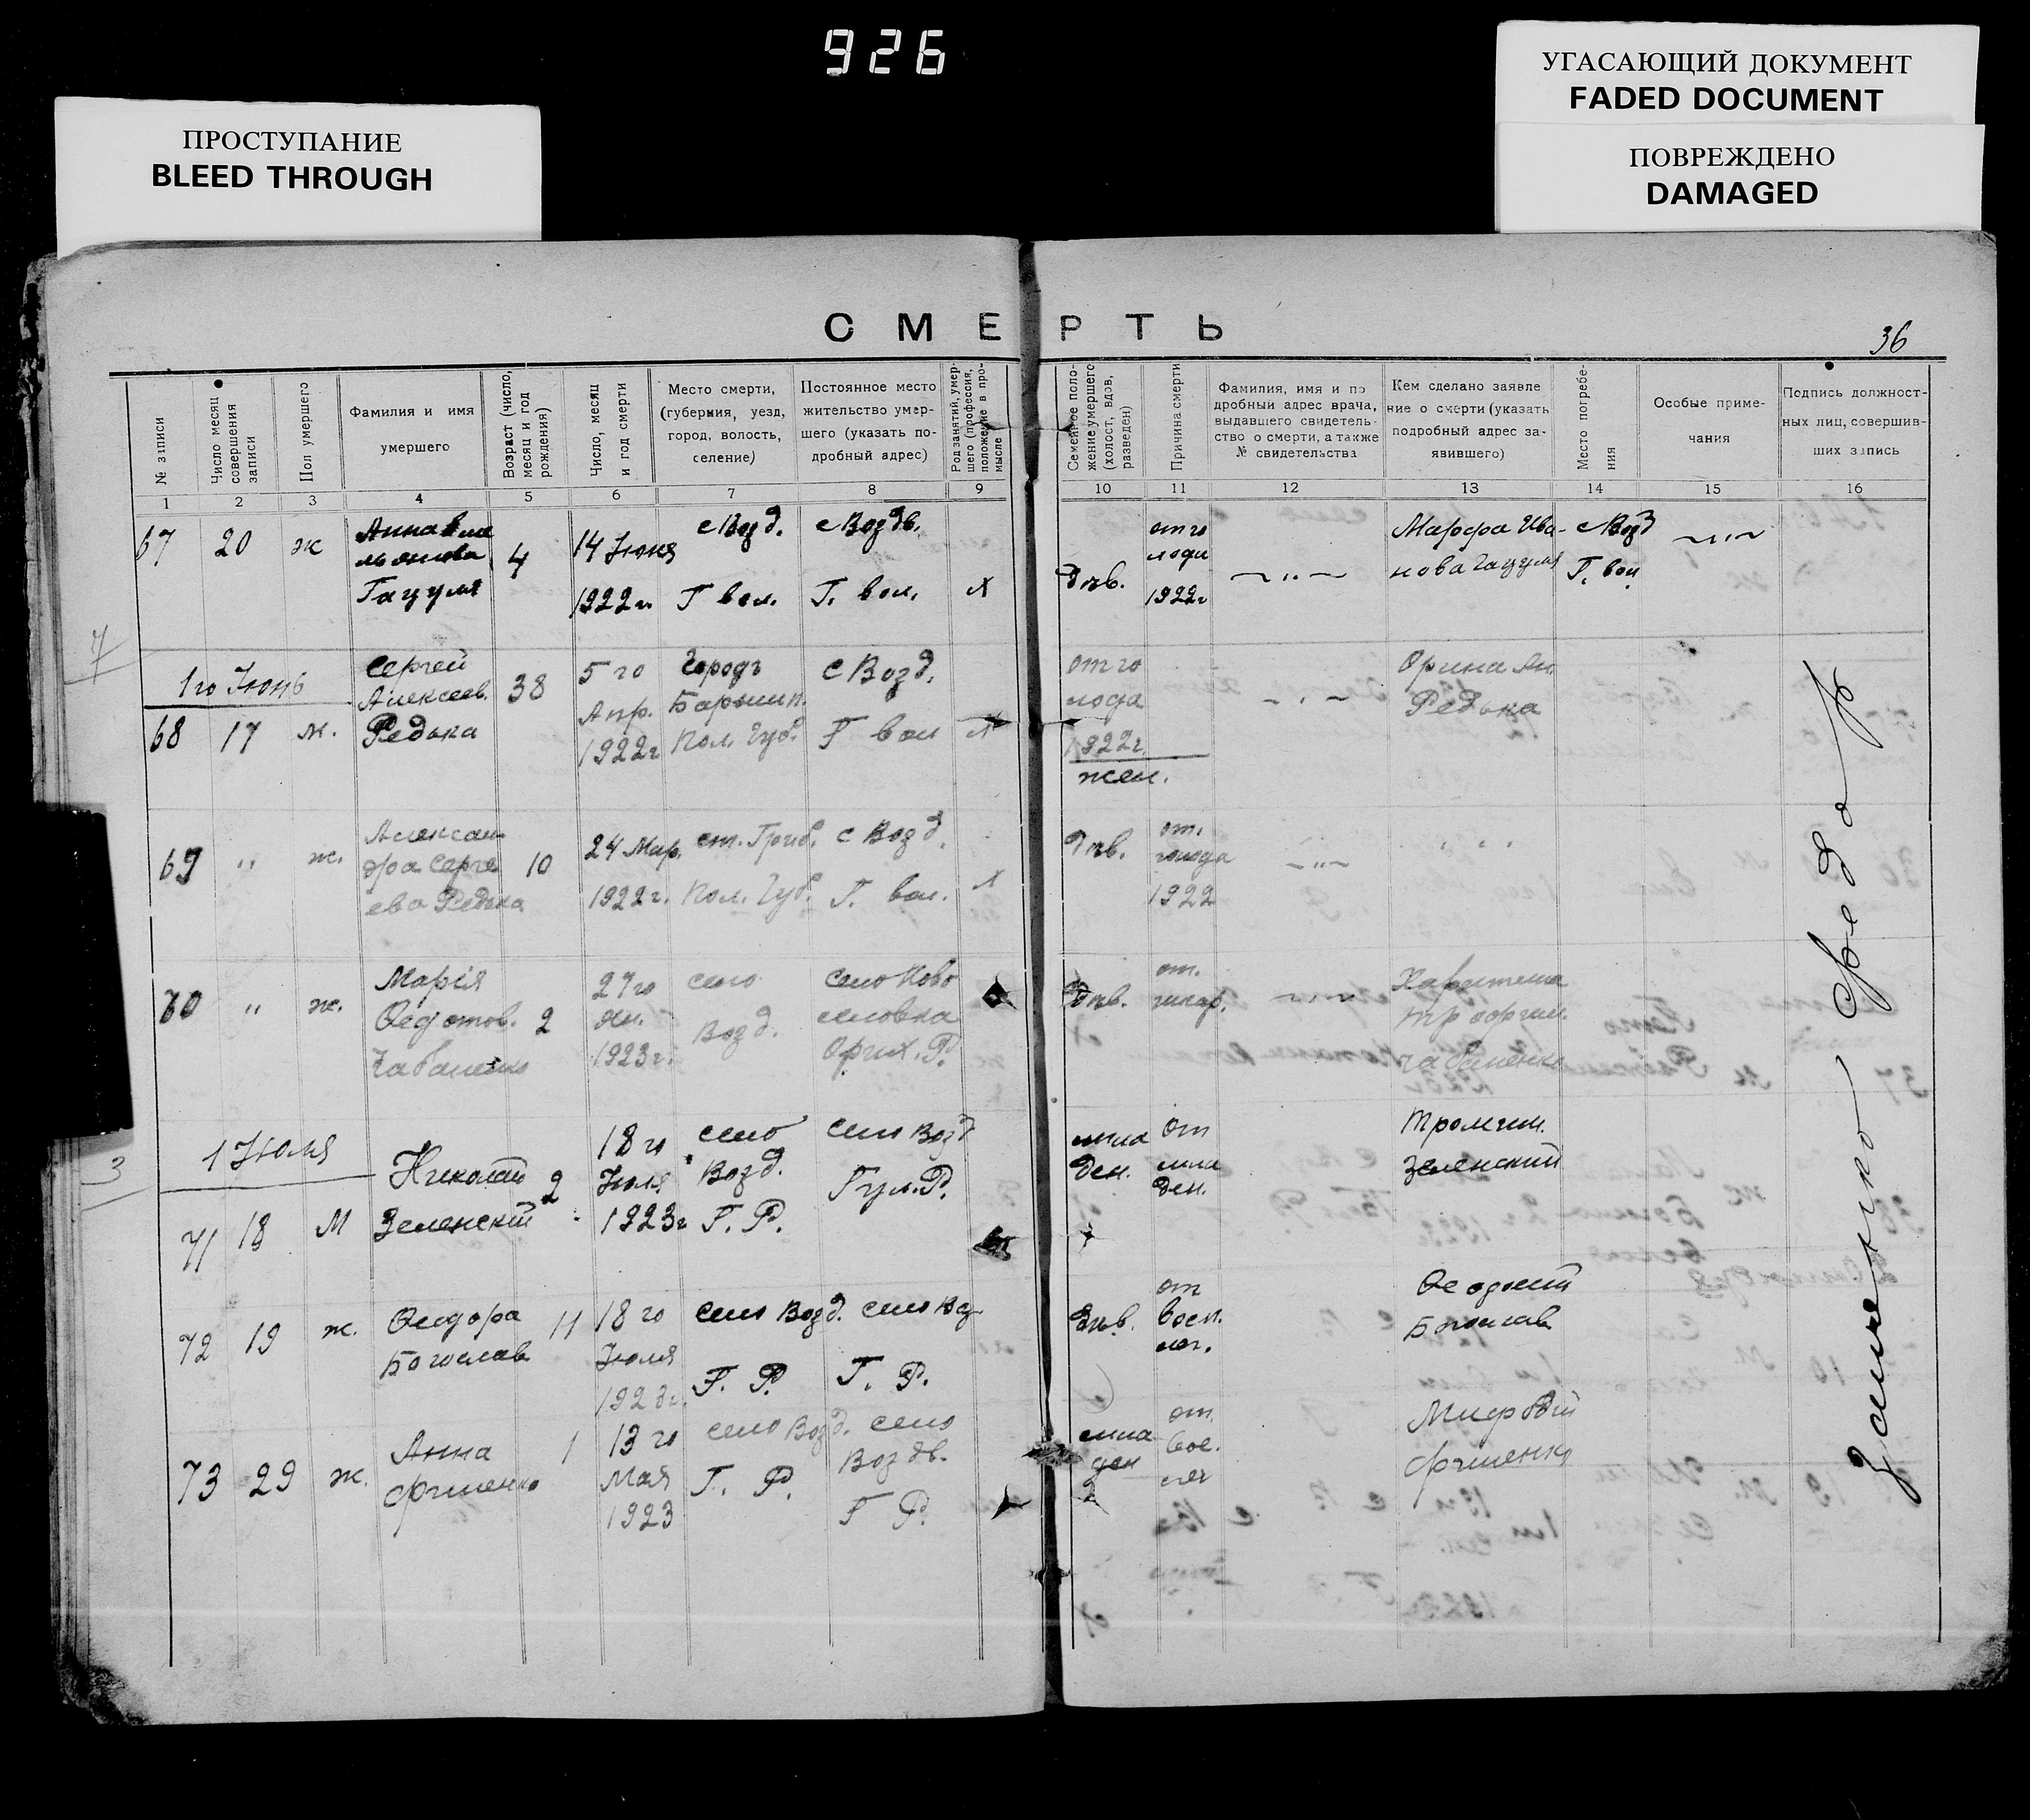 926
УГАСАЮЩИЙ ДОКУМЕНТ
FADED DOCUMENT
ПРОСТУПАНИЕ
BLEED THROUGH
ПОВРЕЖДЕНО
DAMAGED
СМЕРТЬ
36
№ записи
Число месяц совершения записи
Пол умершего
Фамилия и имя умершего
Возраст (число, месяц и год рождения)
Число, месяц и год смерти
Место смерти, (губерния, уезд, город, волость, селение)
Постоянное место жительство умершего (указать подробный адрес)
Род занятий, умершего (профессия, положение в промысле
Семейное положение умершего (холост, вдов, разведен)
Причина смерти
Фамилия, имя и подробный адрес врача, выдавшего свидетельство о смерти, а также № свидетельства
Кем сделано заявление о смерти (указать подробный адрес заявившего)
Место погребения
Особые примечания
Подпись должностных лиц, совершивших запись
1 2 3 4 5 6 7 8 9 10 11 12 13 14 15 16
67 20 ж Анна Гацуля 4 14 Июня 1922 г. с Возд. Г вол. с Воздв. Г. вол. х дев. от голода 1922 г Марфа Иванова Гацуля с Возд Г. вол.
7
1го Июнь
68 17 м. Сергей Алексеев. Редька 38 5 го Апр. 1922 г Городъ Пол. Губ. с Возд. Г вол х от голода 1922 г. жен. Орина Ан. Редька
69 " ж. Александра Сергеева Редька 10 24 Мар. 1922 г. ст. Пол. Губ. с Возд. Г. вол. х дев. от. голода 1922 " "
70 " ж. Марія Федотов. Чабаненко 2 27 го Ян. 1923 г. село Возд. село Ново Орих. Р. дев. от. Чабаненко
3
1 Июля
71 18 М Николай Зеленский 2 18 го Июля 1923 г село Возд. Г. Р. село Возд Гул. Р. младен. от младен. Зеленский
72 19 ж. Федора Богослав 11 18 го Июля 1923 г. село Возд. Г. Р. село Воз Г. Р. дев. от восп. лег. Богослав
73 29 ж. Анна 1 13 го Мая 1923 село Возд. Г. Р. село Воздв. Г Р. младен от вос. лег Мифодій